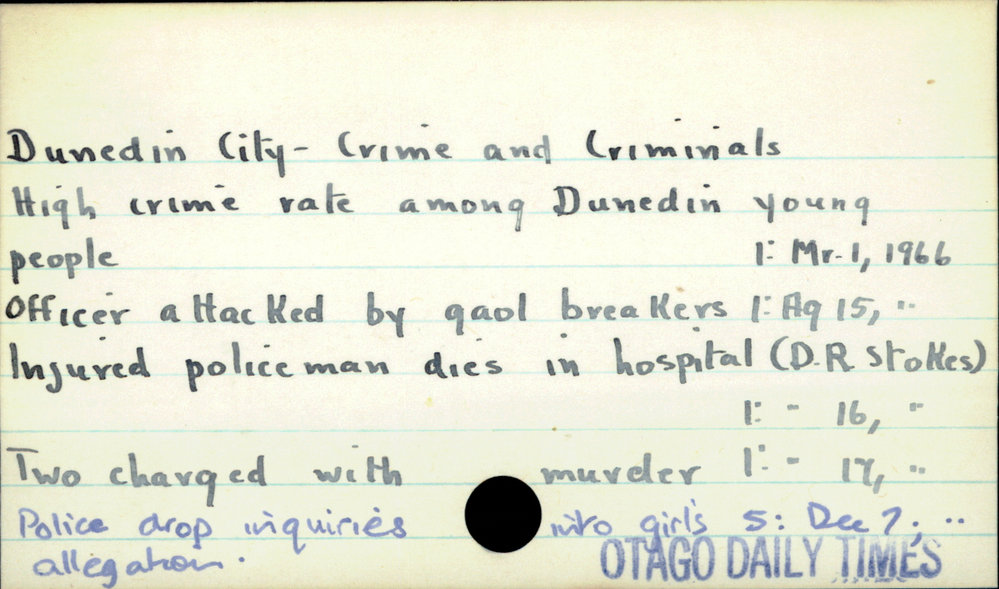 Dunedin City- Crime and Criminals
High crime rate among Dunedin young
people 1: Mr. 1, 1966
Officer attacked by gaol breakers 1: Ag 15, "
Injured policeman dies in hospital (D.R. Stokes)
1: - 16, "
Two charged with murder 1: - 17, "
Police drop inquiries into girl's 5: Dec 7. "
allegation.
OTAGO DAILY TIMES